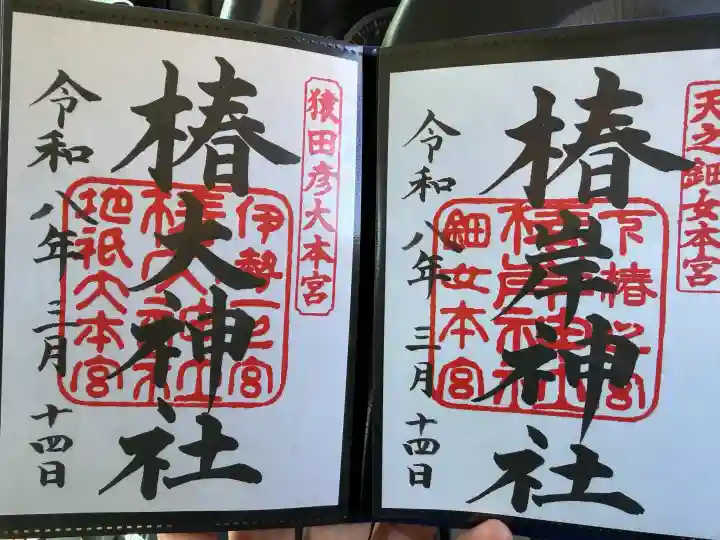 天之鈿女本宮
椿岸神社
下椿
鈿女本宮
令和八年三月十四日
猿田彦大本宮
椿大神社
伊勢一之宮
地祇大本宮
令和八年三月十四日